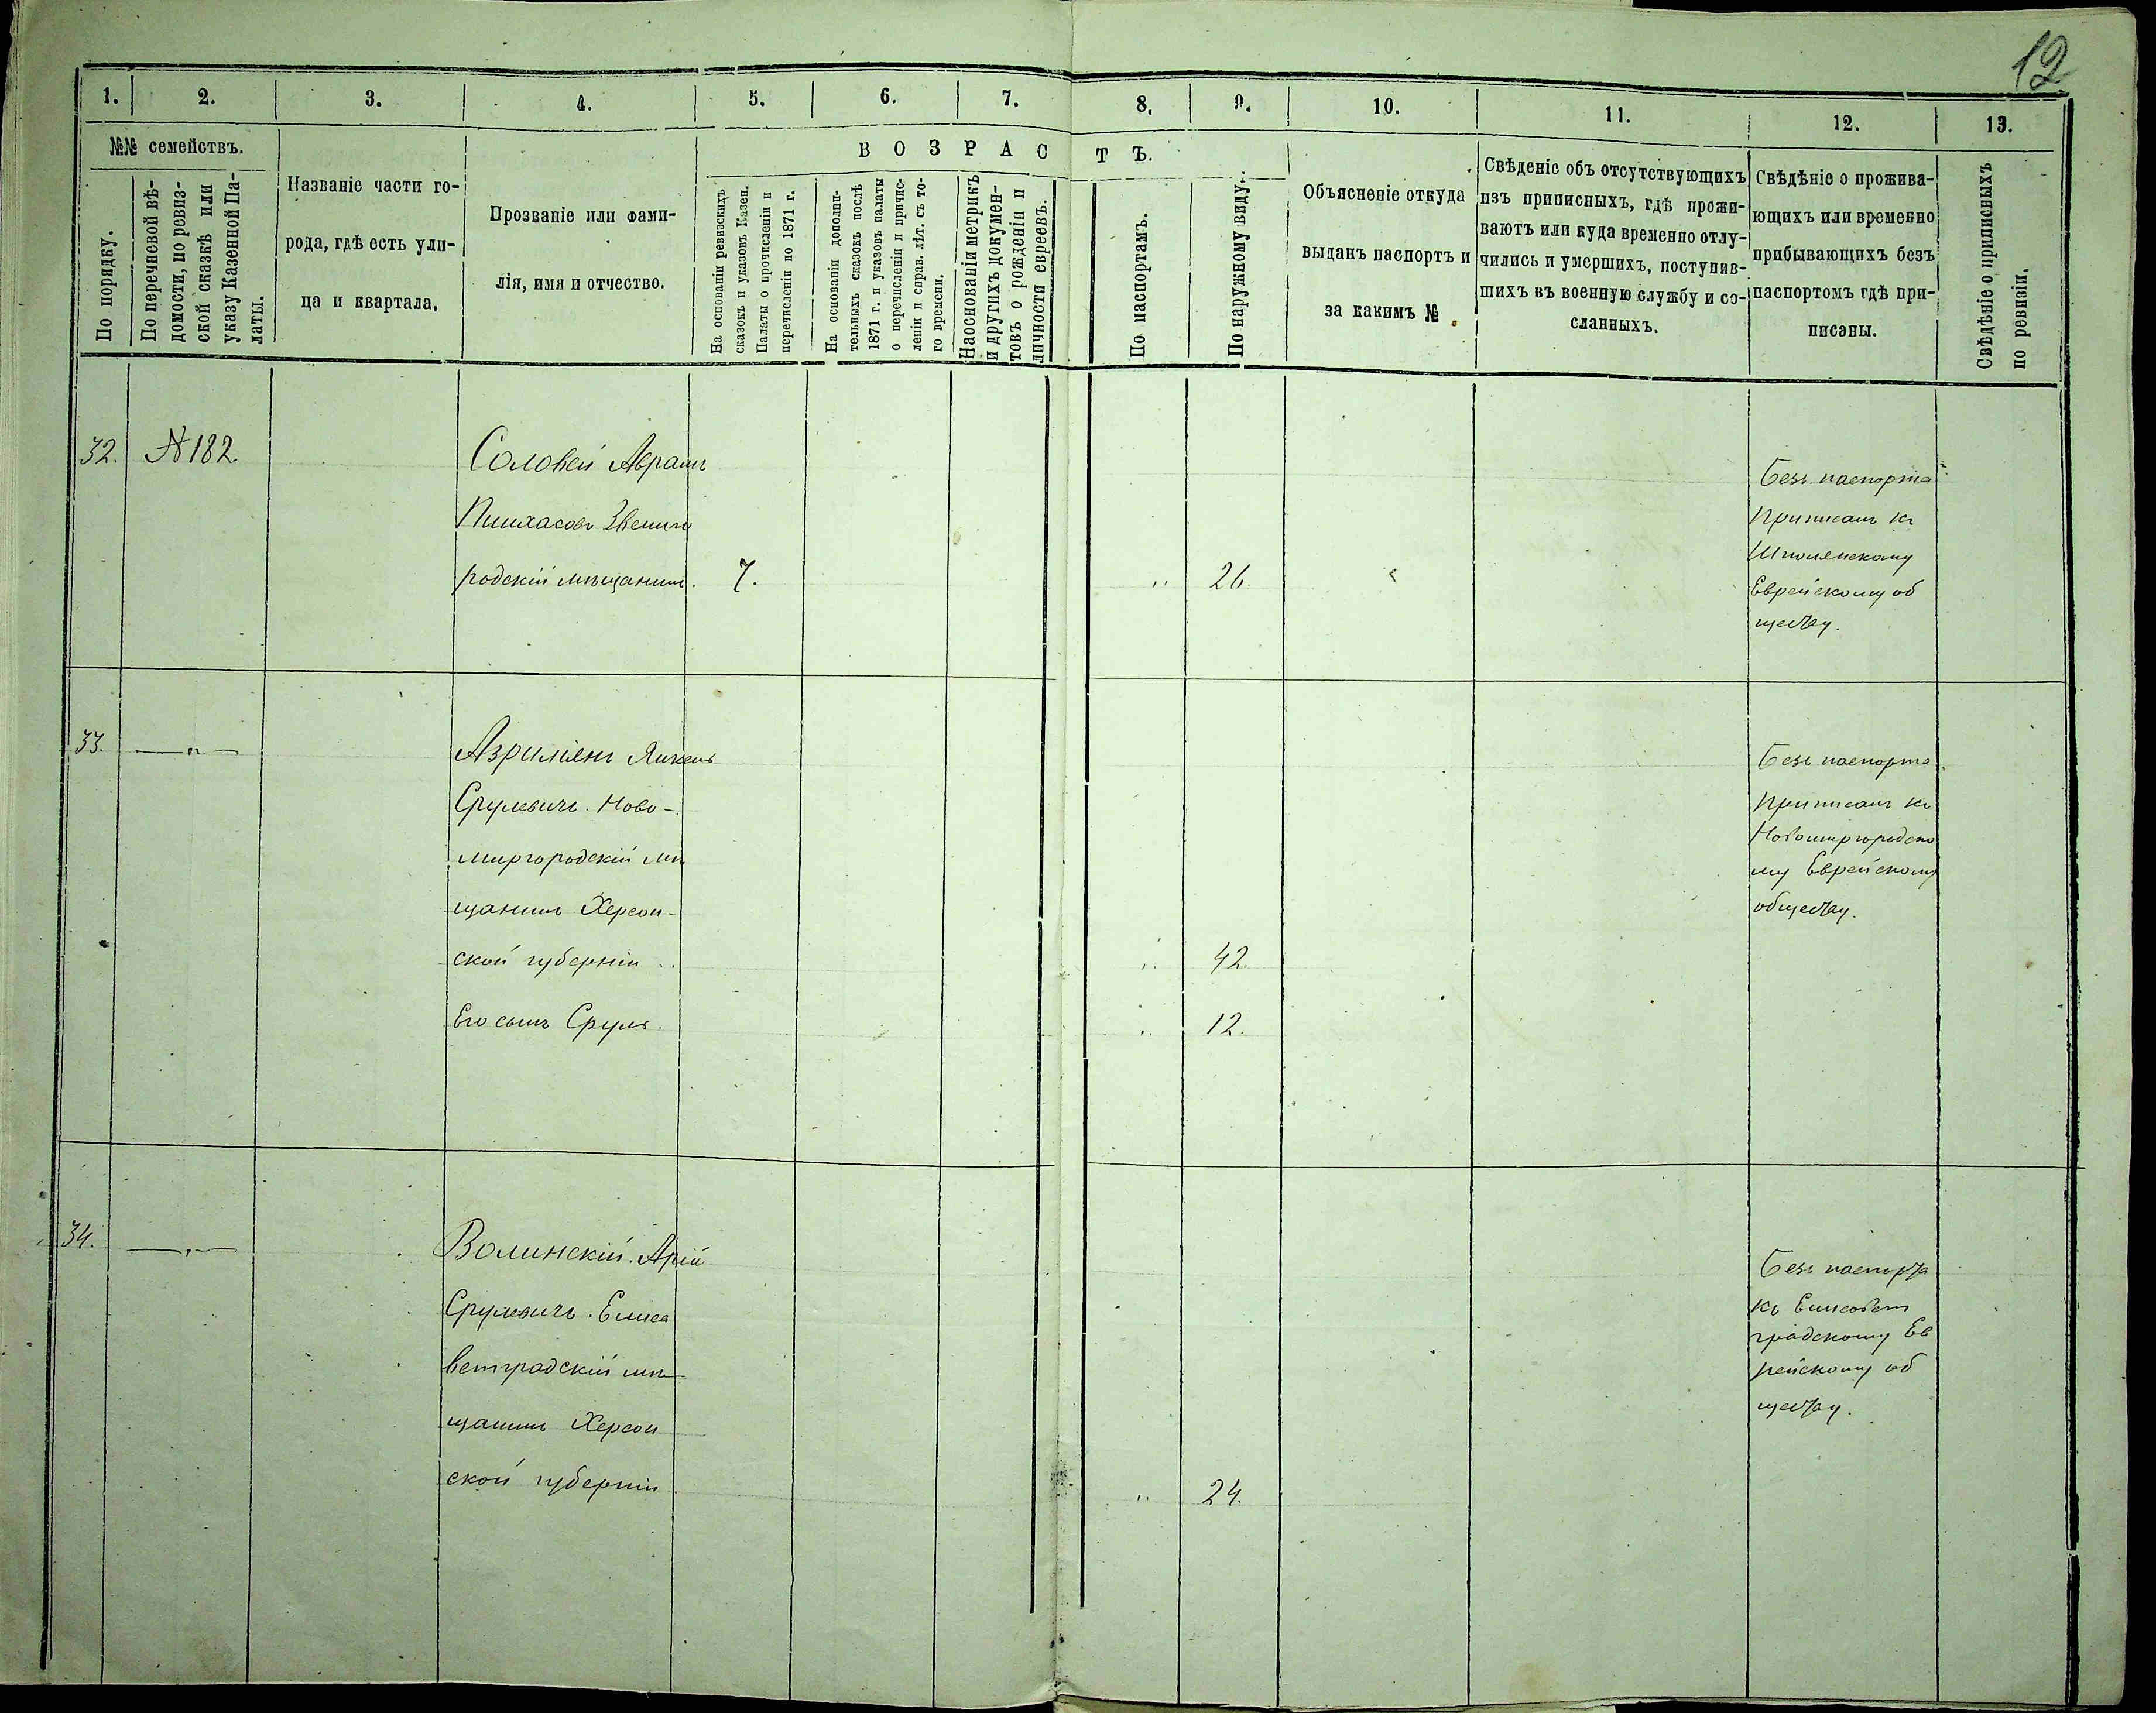 12
1. 2. 3. 4. 5. 6. 7. 8. 9. 10. 11. 12. 13.
№№ семействъ.
По порядку.
По перечневой вѣ-
домости, по ревиз-
ской сказкѣ или
указу Казенной Па-
латы.
Названіе части го-
рода, гдѣ есть ули-
ца и квартала.
Прозваніе или фами-
лія, имя и отчество.
ВОЗРАСТЪ.
На основаніи ревизскихъ
сказокъ и указовъ Казен.
Палаты о прочисленіи и
перечисленіи по 1871 г.
На основаніи дополни-
тельныхъ сказокъ послѣ
1871 г. и указовъ палаты
о перечисленіи и причис-
леніи и справ. лѣт. съ то-
го времени.
Наоснованіи метрикъ
и другихъ докумен-
товъ о рожденіи и
личности евреевъ.
По паспортамъ.
По наружному виду.
Объясненіе откуда
выданъ паспортъ и
за какимъ №
Свѣденіе объ отсутствующихъ
изъ приписныхъ, гдѣ прожи-
ваютъ или куда временно отлу-
чились и умершихъ, поступив-
шихъ въ военную службу и со-
сланныхъ.
Свѣдѣніе о прожива-
ющихъ или временно
прибывающихъ безъ
паспортомъ гдѣ при-
писаны.
Свѣдѣніе о приписныхъ
по ревизіи.
32. № 182.
Соловей Аврамъ
Пинхасовъ Звениго
родскій мѣщанинъ. 7. „ 26.
Безъ паспорта
Приписанъ къ
Шполянскому
Еврейскому об
ществу.
33. —„—
Азриліянъ Янкель
Срулевичъ. Ново-
миргородскій мѣ
щанинъ Херсон-
ской губерніи .. „ 42.
Его сынъ Сруль. „ 12.
Безъ паспорта
Приписанъ къ
Новомиргородско
му Еврейскому
обществу.
34. —„—
Волинскій. Арій
Срулевичъ. Елиса
ветградскій мѣ
щанинъ Херсон
ской губерніи „ 24.
Безъ паспорта
къ Елисавет
градскому Ев
рейскому об
ществу.